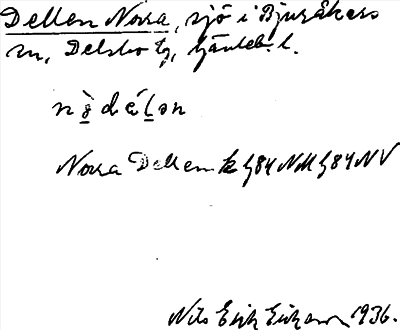 Dellen Norra, sjö i Bjuråkers
sn, Delsbo tg, Gävleb. l.
nò̱dél̲ən
Norra Dellen k G84NM G84NV
Nils Erik Eriksson 1936.